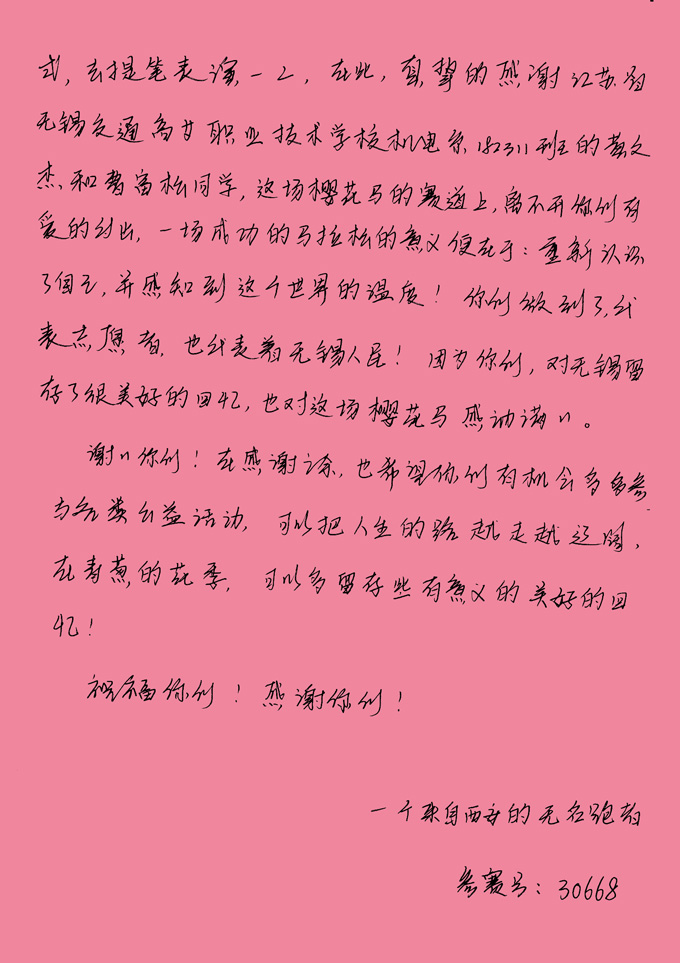 式，去提笔表演一二，在此，真挚的感谢江苏省
无锡交通高等职业技术学校机电系182311班的黄文
杰和费富松同学，这场樱花马的赛道上，离不开你们有
爱的付出，一场成功的马拉松的意义便在于：重新认识
了自己，并感知到这个世界的温度！你们做到了，代
表志愿者，也代表着无锡人民！因为你们，对无锡留
存了很美好的回忆，也对这场樱花马感动满满。
谢谢你们！在感谢之余，也希望你们有机会多多参
与各类公益活动，可以把人生的路越走越辽阔，
在青葱的花季，可以多留存些有意义的美好的回
忆！
祝福你们！感谢你们！
一个来自西安的无名跑者
参赛号：30668